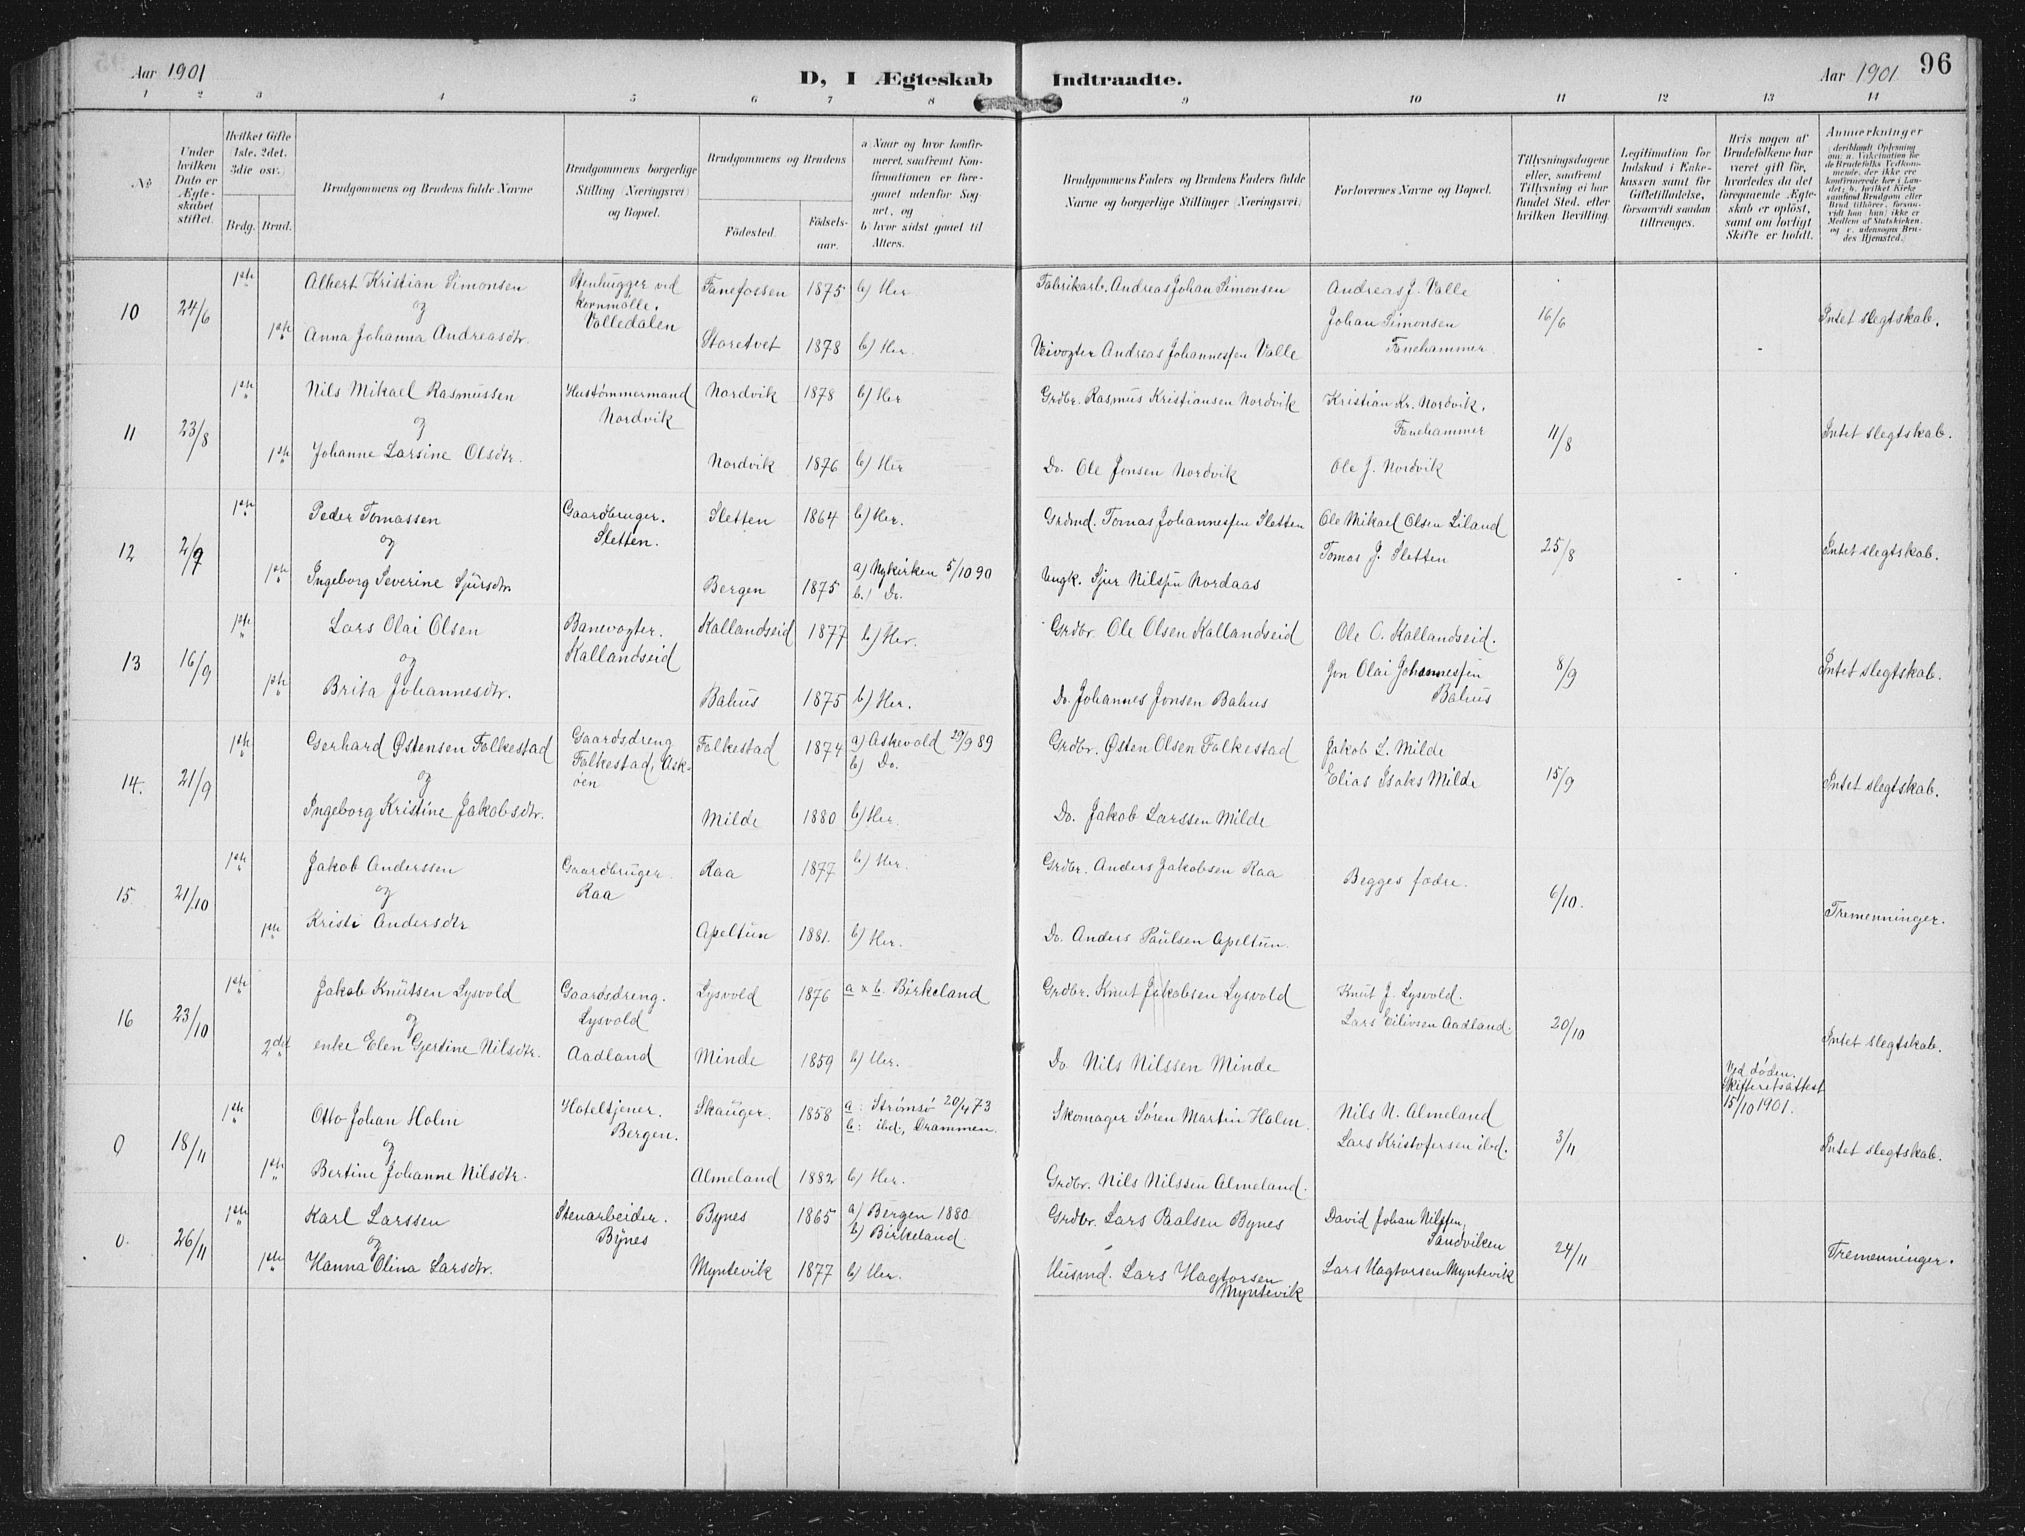 Aar 1901
D, I Ægteskab Indtraadte.
Aar 1901
96
1 2 3 4 5 6 7 8 9 10 11 12 13 14
No
Under hvilken Dato er Ægteskabet stiftet.
Hvilket Gifte (1ste, 2det, 3die osv.)
Brdg. Brud.
Brudgommens og Brudens fulde Navne
Brudgommens borgerlige Stilling (Næringsvei) og Bopæl.
Brudgommens og Brudens
Födested.
Födselsaar.
a Naar og hvor konfirmeret, saafremt Konfirmationen er foregaaet udenfor Sognet, og
b) hvor sidst gaaet til Alters.
Brudgommens Faders og Brudens Faders fulde Navne og borgerlige Stillinger (Næringsvei)
Forlovernes Navne og Bopæl.
Tillysningsdagene eller, saafremt Tillysning ei har fundet Sted, efter hvilken Bevilling.
Legitimation for Indskud i Enkekassen samt for Giftetilladelse, forsaavidt saadan tiltrænges.
Hvis nogen af Brudefolkene har været gift før, hvorledes da det foregaaende Ægteskab er oplöst, samt om lovligt Skifte er holdt.
Anmerkninger
(deriblandt Oplysning om: a. Vakcination for de Brudefolks Vedkommende, der ikke ere konfirmerede her i Landet; b. hvilket Kirkesamfund Brudgom eller Brud tilhører, forsaavidt han (hun) ikke er Medlem af Statskirken, og c. udensogns Brudes Hjemsted.)
10 24/6 1ste Albert Kristian Simonsen Stenhugger ved Kornmølle. Valledalen Fanefossen 1875 b) Her Fabrikarb. Andreas Johan Simonsen Andreas J. Valle 16/6 Intet slegtskab.
og Johan Simonsen Fanehammer
1ste Anna Johanna Andreasdtr. Storetvet 1878 b) Her. Veivogter Andreas Johannessen Valle
11 23/8 1ste Nils Mikael Rasmussen Hustømmermand Nordvik Nordvik 1878 b) Her Grdbr. Rasmus Kristiansen Nordvik Kristian Kr. Nordvik, Fanehammer 11/8 Intet slegtskab.
og
1ste Johanne Larsine Olsdtr. Nordvik 1876 b) Her Do. Ole Jonsen Nordvik Ole J. Nordvik
12 2/9 1ste Peder Tomassen Gaardbruger. Sletten. Sletten 1864 b) Her. Grdmd. Tomas Johannessen Sletten Ole Mikael Olsen Liland 25/8 Intet slegtskab.
og Tomas J. Sletten
1ste Ingeborg Severine Sjursdtr. Bergen 1875 a) Nykirken 5/10 90 b.) Do. Ungk. Sjur Nilssen Nordaas
13 16/9 1ste Lars Olai Olsen Banevogter. Kallandseid Kallandseid 1877 b) Her. Grdbr. Ole Olsen Kallandseid Ole O. Kallandseid. 8/9 Intet slegtskab.
og Jon Olai Johannessen Bahus
1ste Brita Johannesdtr. Bahus 1875 b) Her. Do. Johannes Jonsen Bahus
14. 21/9 1ste Gerhard Østensen Folkestad Gaardsdreng Folkestad, Askøen Folkestad 1874 a) Askevold 29/9 89 b) Do. Grdbr. Østen Olsen Folkestad Jakob L. Milde 15/9 Intet slegtskab.
og Elias Isaks Milde
Ingeborg Kristine Jakobsdtr. Milde 1880 b) Her. Do. Jakob Larssen Milde
15 21/10 1ste Jakob Anderssen Gaardbruger Raa Raa 1877 b) Her. Grdbr. Anders Jakobsen Raa Begges fædre. 6/10. Tremenninger.
og
1ste Kristi Andersdtr Apeltun 1881. b) Her. Do. Anders Paulsen Apeltun.
16 23/10 1ste Jakob Knutsen Lysvold Gaardsdreng. Lysvold Lysvold 1876 a & b. Birkeland Grdbr. Knut Jakobsen Lysvold Knut J. Lysvold. 20/10 Intet slegtskab.
og Lars Eilivsen Aadland.
2det enke Elen Gjertine Nilsdtr. Aadland Minde 1859 b) Her. Do. Nils Nilssen Minde Ved døden. Skifteretsattest 15/10 1901.
0 18/11 1ste Otto Johan Holm Hoteltjener. Bergen. Skauger. 1858 a: Strømsø 20/4 73 b: ibd., Drammen. Skomager Søren Martin Holm Nils N. Almeland 3/11 Intet slegtskab.
og Lars Kristofersen ibd.
1ste Bertine Johanne Nilsdtr. Almeland 1882 b) Her. Grdbr. Nils Nilssen Almeland.
0. 26/11 1ste Karl Larssen Stenarbeider. Bynes Bynes 1865 a) Bergen 1880 b) Birkeland. Grdbr. Lars Paalsen Bynes David Johan Nilssen, Sandviken 24/11 Tremenninger.
og
1ste Hanna Olina Larsdtr. Myntevik 1877 b) Her. Husmd. Lars Hagtorsen Myntevik Lars Hagtorsen Myntevik